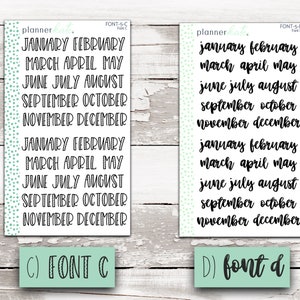 planner
FONT-S-C
JANUARY FEBRUARY
MARCH APRIL MAY
JUNE JULY AUGUST
SEPTEMBER OCTOBER
NOVEMBER DECEMBER
JANUARY FEBRUARY
MARCH APRIL MAY
JUNE JULY AUGUST
SEPTEMBER OCTOBER
NOVEMBER DECEMBER
C) FONT C
planner
january february
march april may
june july august
september october
november december
january february
march april may
june july august
september october
november december
D) font d